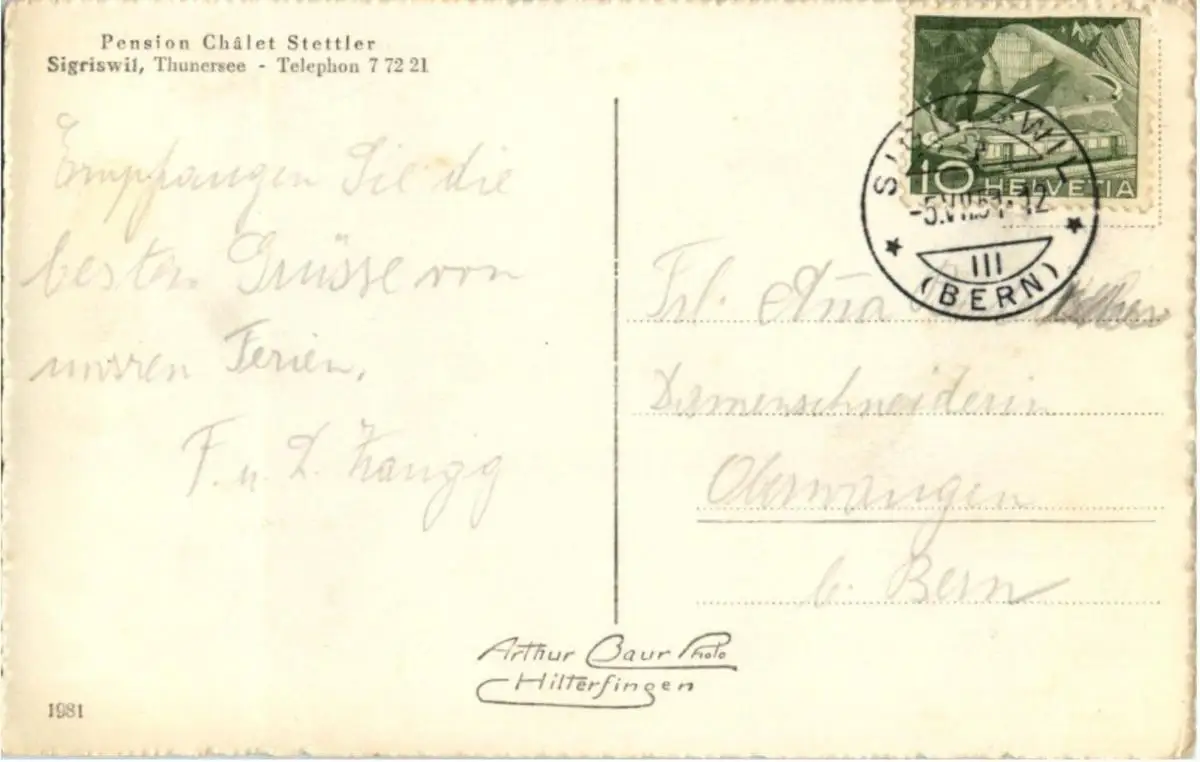 Pension Châlet Stettler
Sigriswil, Thunersee - Telephon 7 72 21
Empfangen Sie die
besten Grüsse von
unsren Ferien.
F. u. L. Zaugg
10 HELVETIA
SIGRISWIL
-5.VII.51-12
III
(BERN)
Frl.
Damenschneiderin
Oberwangen
b. Bern
Arthur Baur Photo
Hilterfingen
1981